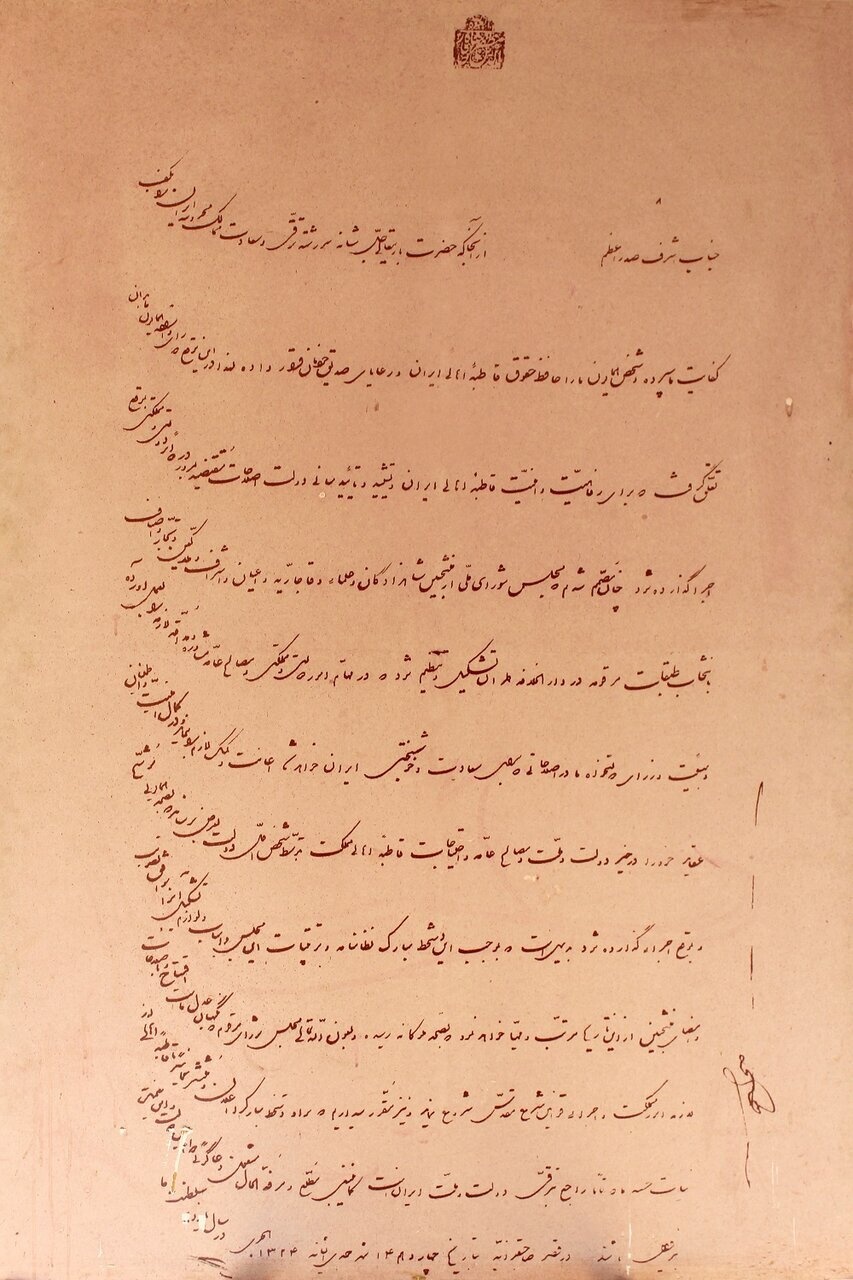 جناب اشرف صدراعظم از آنجا که حضرت باریتعالی جل شانه سررشته ترقی و سعادت ممالک محروسه ایران را بکف
کفایت ما سپرده و شخص همایون ما را حافظ حقوق قاطبهٔ اهالی ایران و رعایای صدیق خودمان قرار داده لهذا در این موقع که رای و اراده همایون ما بدان
تعلق گرفت که برای رفاهیت و امنیت قاطبهٔ اهالی ایران و تشیید و تأیید مبانی دولت اصلاحات مُقتضیه بمرور در دوائر دولتی و مملکتی بموقع
اجرا گذارده شود چنان مصمم شدیم که مجلس شورای ملی از منتخبین شاهزادگان و علماء و قاجاریه و اعیان و اشراف و ملاکین و تجار و اصناف
بانتخاب طبقات مرقومه در دارالخلافه طهران تشکیل و تنظیم شود که در مهام امور دولتی و مملکتی و مصالح عامه مشاوره و مداقه لازمه را بعمل آورده
و بهیئت وزرای دولتخواه ما در اصلاحاتی که برای سعادت و خوشبختی ایران خواهد شد اعانت و کمک لازم را بنماید و در کمال امنیت و اطمینان
عقاید خود را در خیر دولت و ملت و مصالح عامه و احتیاجات قاطبهٔ اهالی مملکت بتوسط شخص اول دولت بعرض برساند که بصحه همایونی مُوشّح
و بموقع اجرا گذارده شود بدیهی است که بموجب این دستخط مبارک نظامنامه و ترتیبات این مجلس و اسباب و لوازم تشکیل آنرا موافق تصویب
و امضای منتخبین از این تاریخ مرتب و مهیا خواهد نمود که بصحه ملوکانه رسیده و بعون الله تعالی مجلس شورای مرقوم که نگهبان عدل ماست افتتاح و باصلاحات
لازمه امور مملکت و اجراء قوانین شرع مقدس شروع نماید و نیز مقرر میداریم که سواد دستخط مبارک را اعلان و منتشر نمائید تا قاطبهٔ اهالی از
نیات حسنه ما که تماماً راجع بترقی دولت و ملت ایران است کماینبغی مطلع و مرفه الحال مشغول دعاگوئی دوام این دولت و این نعمت
بیزوال باشند در قصر صاحبقرانیه بتاریخ چهاردهم شهر جمادی الثانیه ۱۳۲۴ هجری در سال یازدهم سلطنت ما